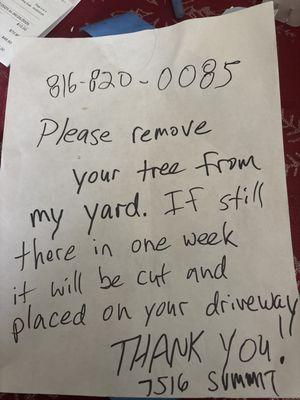 816-820-0085
Please remove
your tree from
my yard. If still
there in one week
it will be cut and
placed on your driveway
THANK YOU!!
7516 SUMMIT